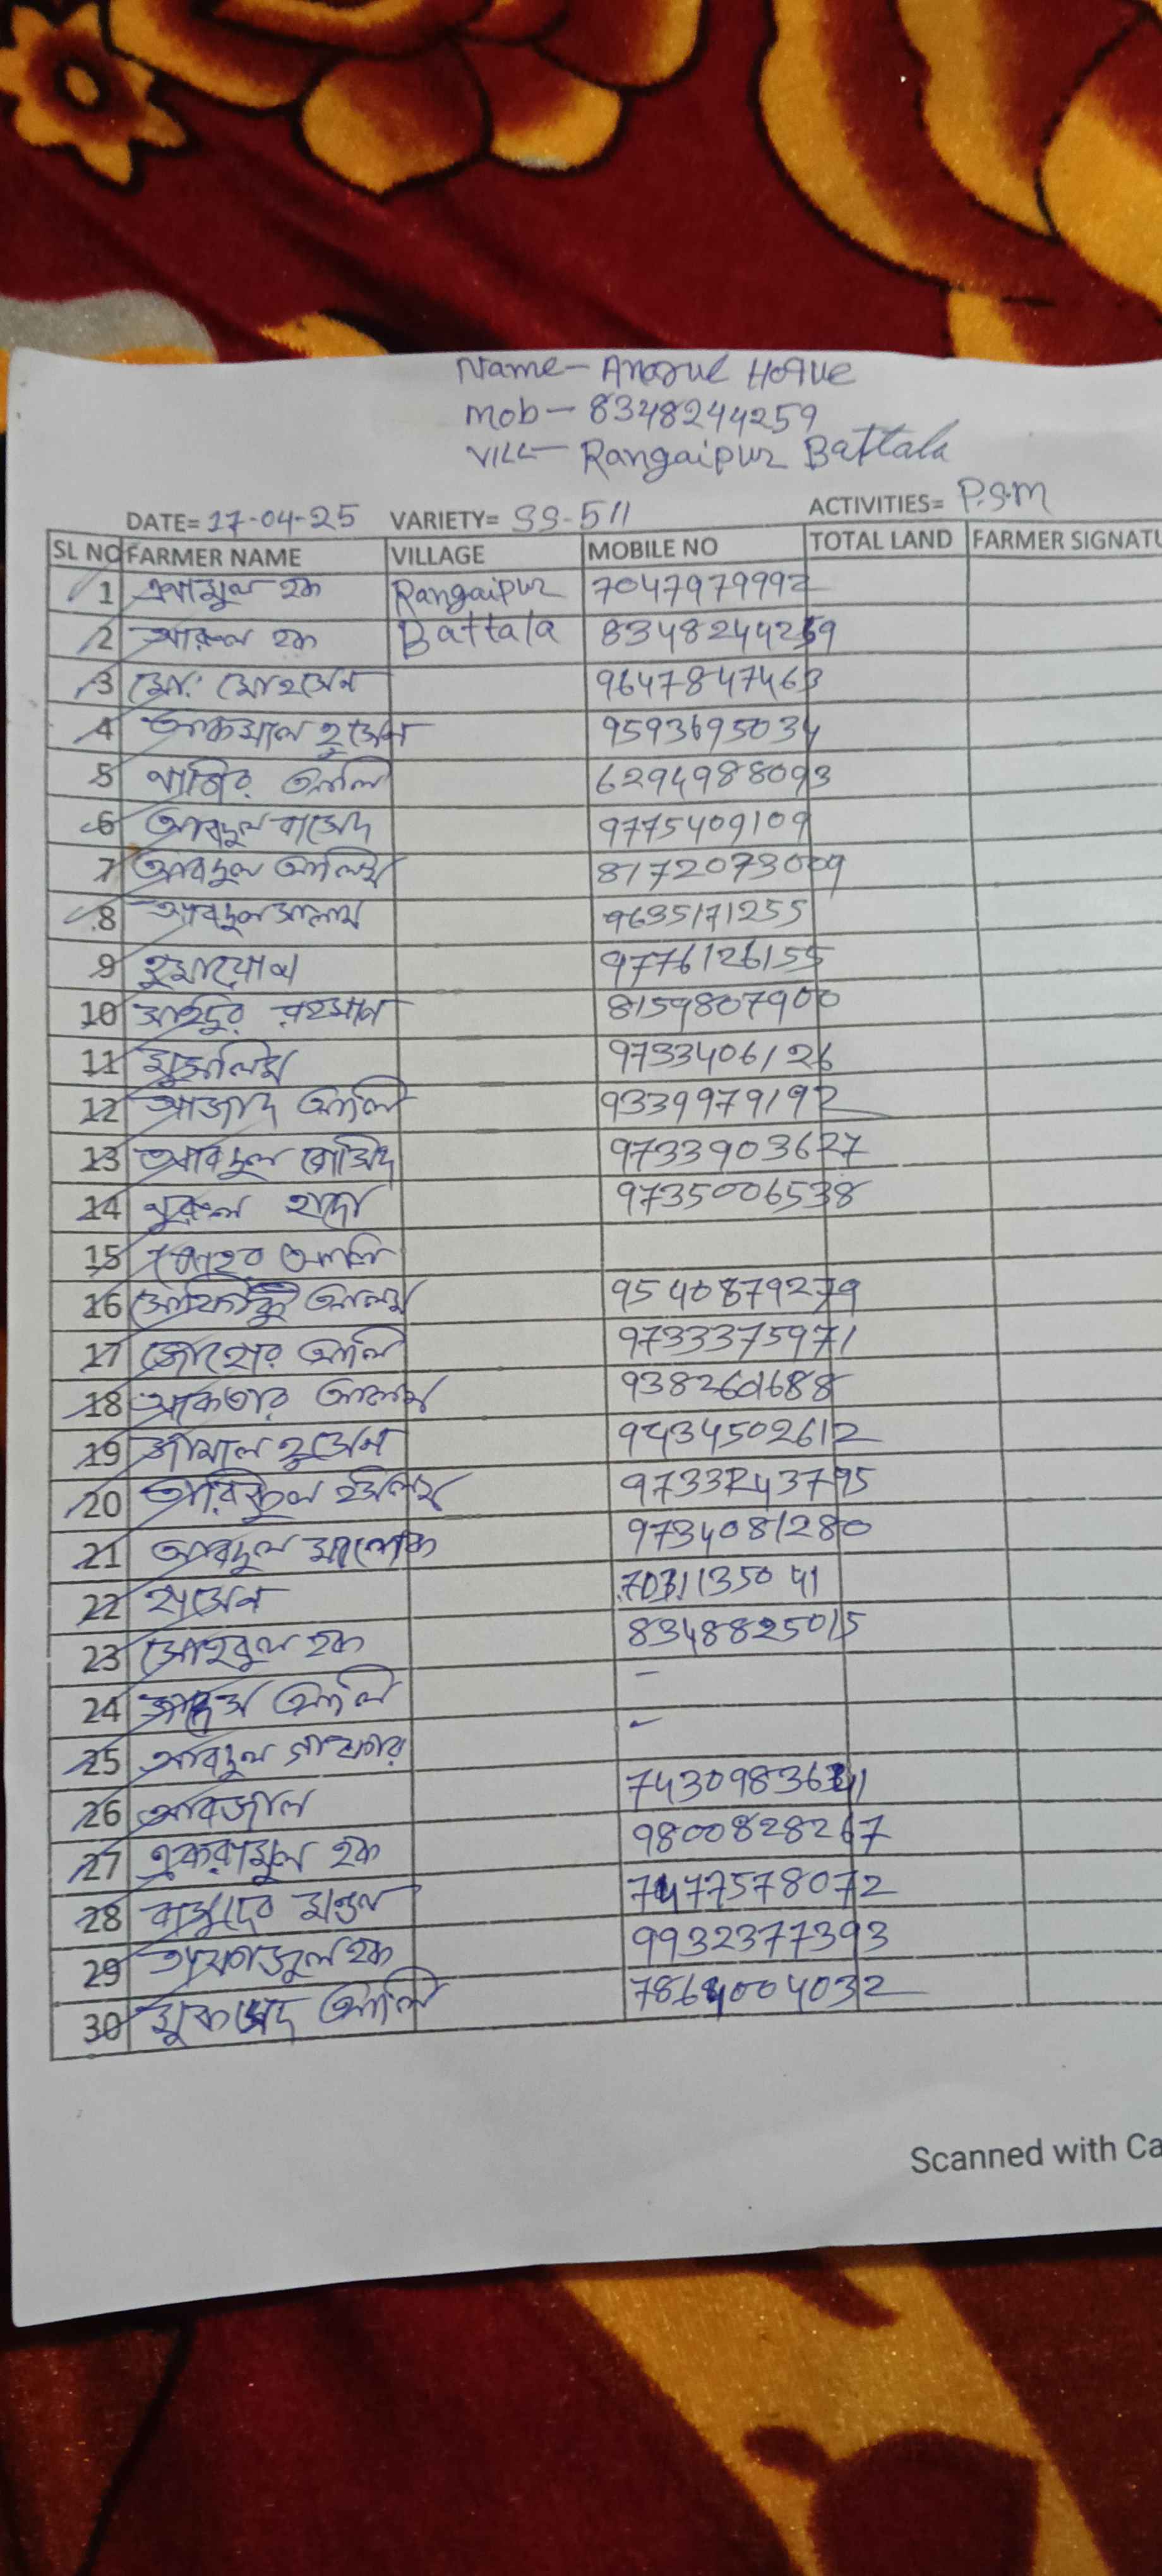 Name - Anarul Hoque
Mob - 8348244259
Vill - Rangaipur Battala
DATE= 17-04-25 VARIETY= SS-511 ACTIVITIES= P.S.M
SL NO FARMER NAME VILLAGE MOBILE NO TOTAL LAND FARMER SIGNATU
1 এনামুল হক Rangaipur 7047979992
2 আরুল হক Battala 8348244259
3 মোঃ মোহসেন 9647847463
4 আকমাল হুসেন 9593695034
5 নাজির আলি 6294988093
6 আবদুল বাসেদ 9775409109
7 আবদুল আলিম 8172073009
8 আবদুল সালাম 9635171255
9 হুমায়োন 9776126155
10 সাইদুর রহমান 8159807900
11 মুসলিম 9733406126
12 আজাদ আলি 9339979192
13 আবদুল রোসিদ 9733903627
14 নুরুল হাদা 9735006538
15 আলি
16 আলম 9540879279
17 জোহার আলি 9733375971
18 আকতার আলম 9382601688
19 জামাল হুসেন 9434502612
20 9733243795
21 আবদুল মালেক 9734081280
22 হাসেন 7031135041
23 সোহবুল হক 8348825015
24 আলি -
25 আবদুল গাফফার -
26 আবজাল
27 একরামুল হক 9800828267
28 বাসুদেব মণ্ডল 7477578072
29 তাফাজুল হক 9932377393
30 মুকসেদ আলি 7864004032
Scanned with Ca